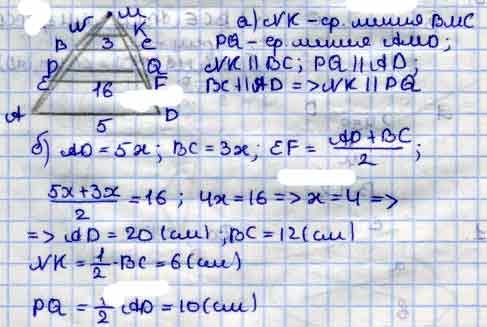 M
N K
B 3 C
P Q
E 16 F
A 5 D
а) NK – ср. линия BMC
PQ – ср. линия AMD;
NK || BC; PQ || AD;
BC || AD => NK || PQ
б) AD = 5x; BC = 3x; EF = (AD + BC)/2;
(5x + 3x)/2 = 16; 4x = 16 => x = 4 =>
=> AD = 20 (см); BC = 12 (см)
NK = 1/2 · BC = 6 (см)
PQ = 1/2 AD = 10 (см)